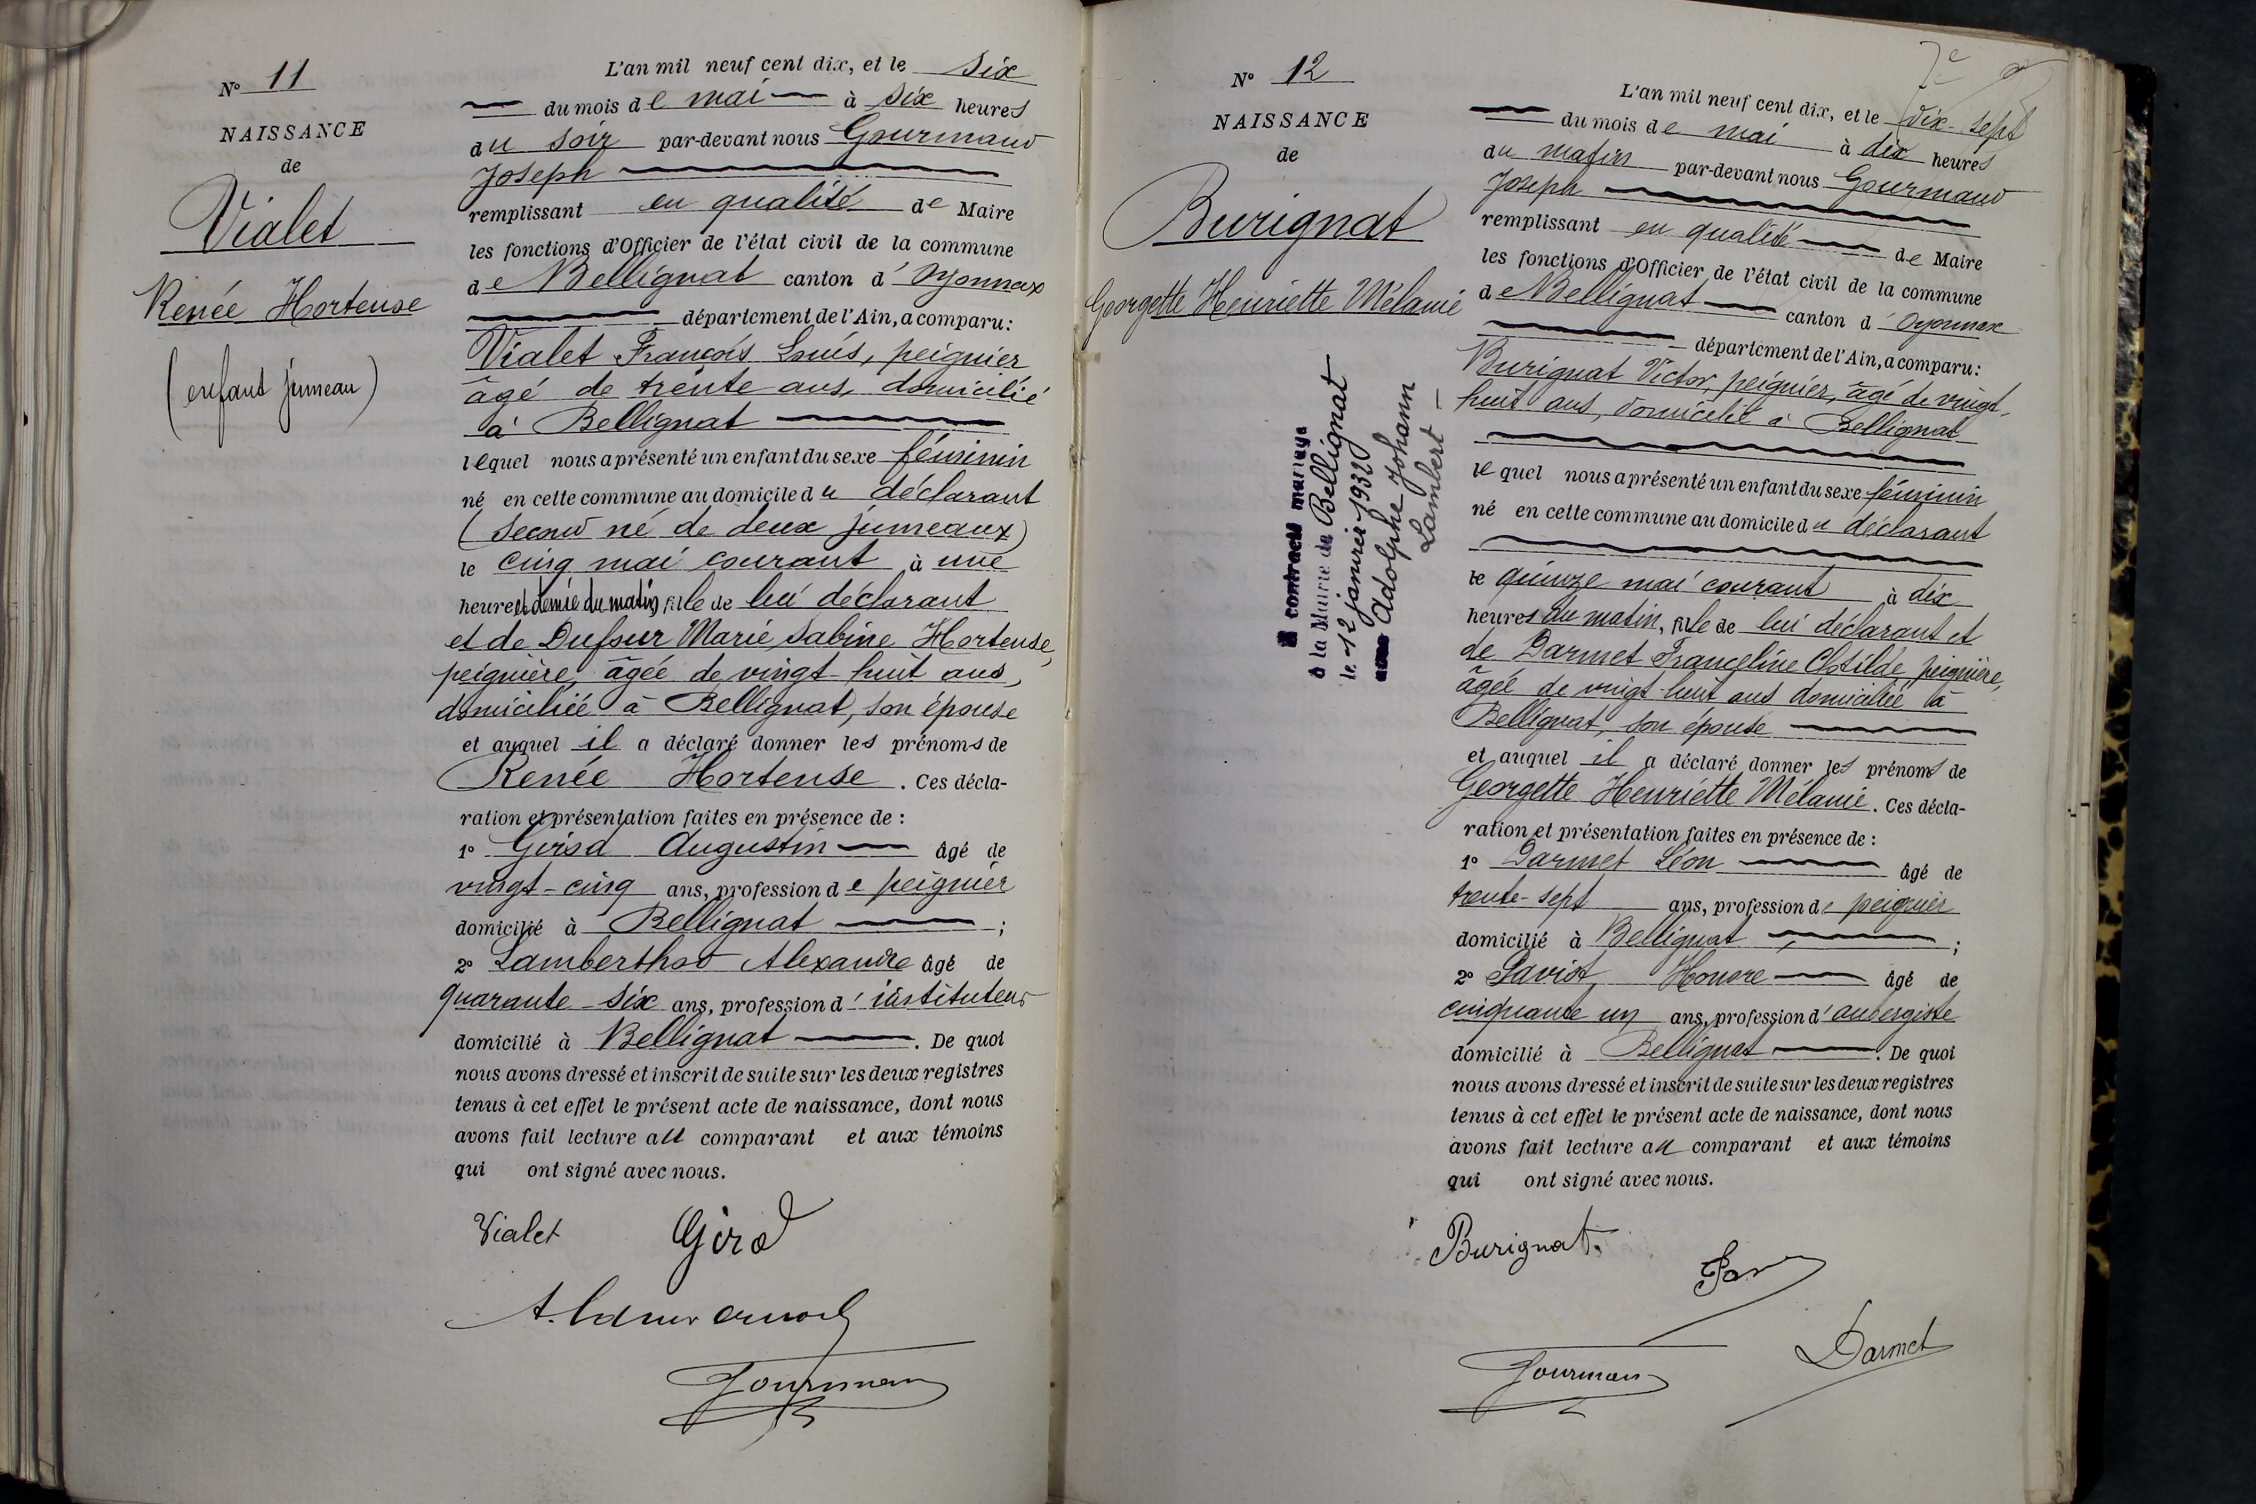 N° 11
NAISSANCE
de
Vialet
Renée Hortense
(enfant jumeau)
L'an mil neuf cent dix, et le six
du mois de mai à six heures
du soir par-devant nous Gourmand
Joseph
remplissant en qualité de Maire
les fonctions d'Officier de l'état civil de la commune
de Bellignat canton d'Oyonnax
département de l'Ain, a comparu:
Vialet François Louis, peignier
âgé de trente ans, domicilié
à Bellignat
lequel nous a présenté un enfant du sexe féminin
né en cette commune au domicile du déclarant
(second né de deux jumeaux)
le cinq mai courant à une
heure et demie du matin fille de lui déclarant
et de Dufour Marie Sabine Hortense,
peignière, âgée de vingt-huit ans,
domiciliée à Bellignat, son épouse
et auquel il a déclaré donner les prénoms de
Renée Hortense. Ces décla-
ration et présentation faites en présence de :
1° Girod Augustin âgé de
vingt-cinq ans, profession de peignier
domicilié à Bellignat ;
2° Alexandre âgé de
quarante-six ans, profession d'instituteur
domicilié à Bellignat. De quoi
nous avons dressé et inscrit de suite sur les deux registres
tenus à cet effet le présent acte de naissance, dont nous
avons fait lecture au comparant et aux témoins
qui ont signé avec nous.
Vialet Girod
Gourmand
N° 12
NAISSANCE
de
Burignat
Georgette Henriette Mélanie
a contracté mariage
à la Mairie de Bellignat
le 12 janvier 1932
avec Adolphe Johann
Lambert
L'an mil neuf cent dix, et le dix-sept
du mois de mai à dix heures
du matin par-devant nous Gourmand
Joseph
remplissant en qualité de Maire
les fonctions d'Officier de l'état civil de la commune
de Bellignat canton d'Oyonnax
département de l'Ain, a comparu:
Burignat Victor, peignier, âgé de vingt-
huit ans, domicilié à Bellignat
lequel nous a présenté un enfant du sexe féminin
né en cette commune au domicile du déclarant
le quinze mai courant à dix
heures du matin, fille de lui déclarant et
de Darmet Franceline Clotilde, peignière,
âgée de vingt-huit ans domiciliée à
Bellignat, son épouse
et auquel il a déclaré donner les prénoms de
Georgette Henriette Mélanie. Ces décla-
ration et présentation faites en présence de :
1° Darmet Léon âgé de
trente-sept ans, profession de peignier
domicilié à Bellignat ;
2° Honoré âgé de
cinquante un ans, profession d'aubergiste
domicilié à Bellignat. De quoi
nous avons dressé et inscrit de suite sur les deux registres
tenus à cet effet le présent acte de naissance, dont nous
avons fait lecture au comparant et aux témoins
qui ont signé avec nous.
Burignat.
Gourmand Darmet